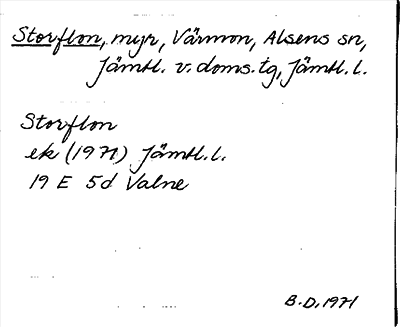 Storflon, myr, Värmon, Alsens sn,
Jämtl. v. doms. tg, Jämtl. l.
Storflon
ek (1971) Jämtl. l.
19 E 5d Valne
B.D. 1971